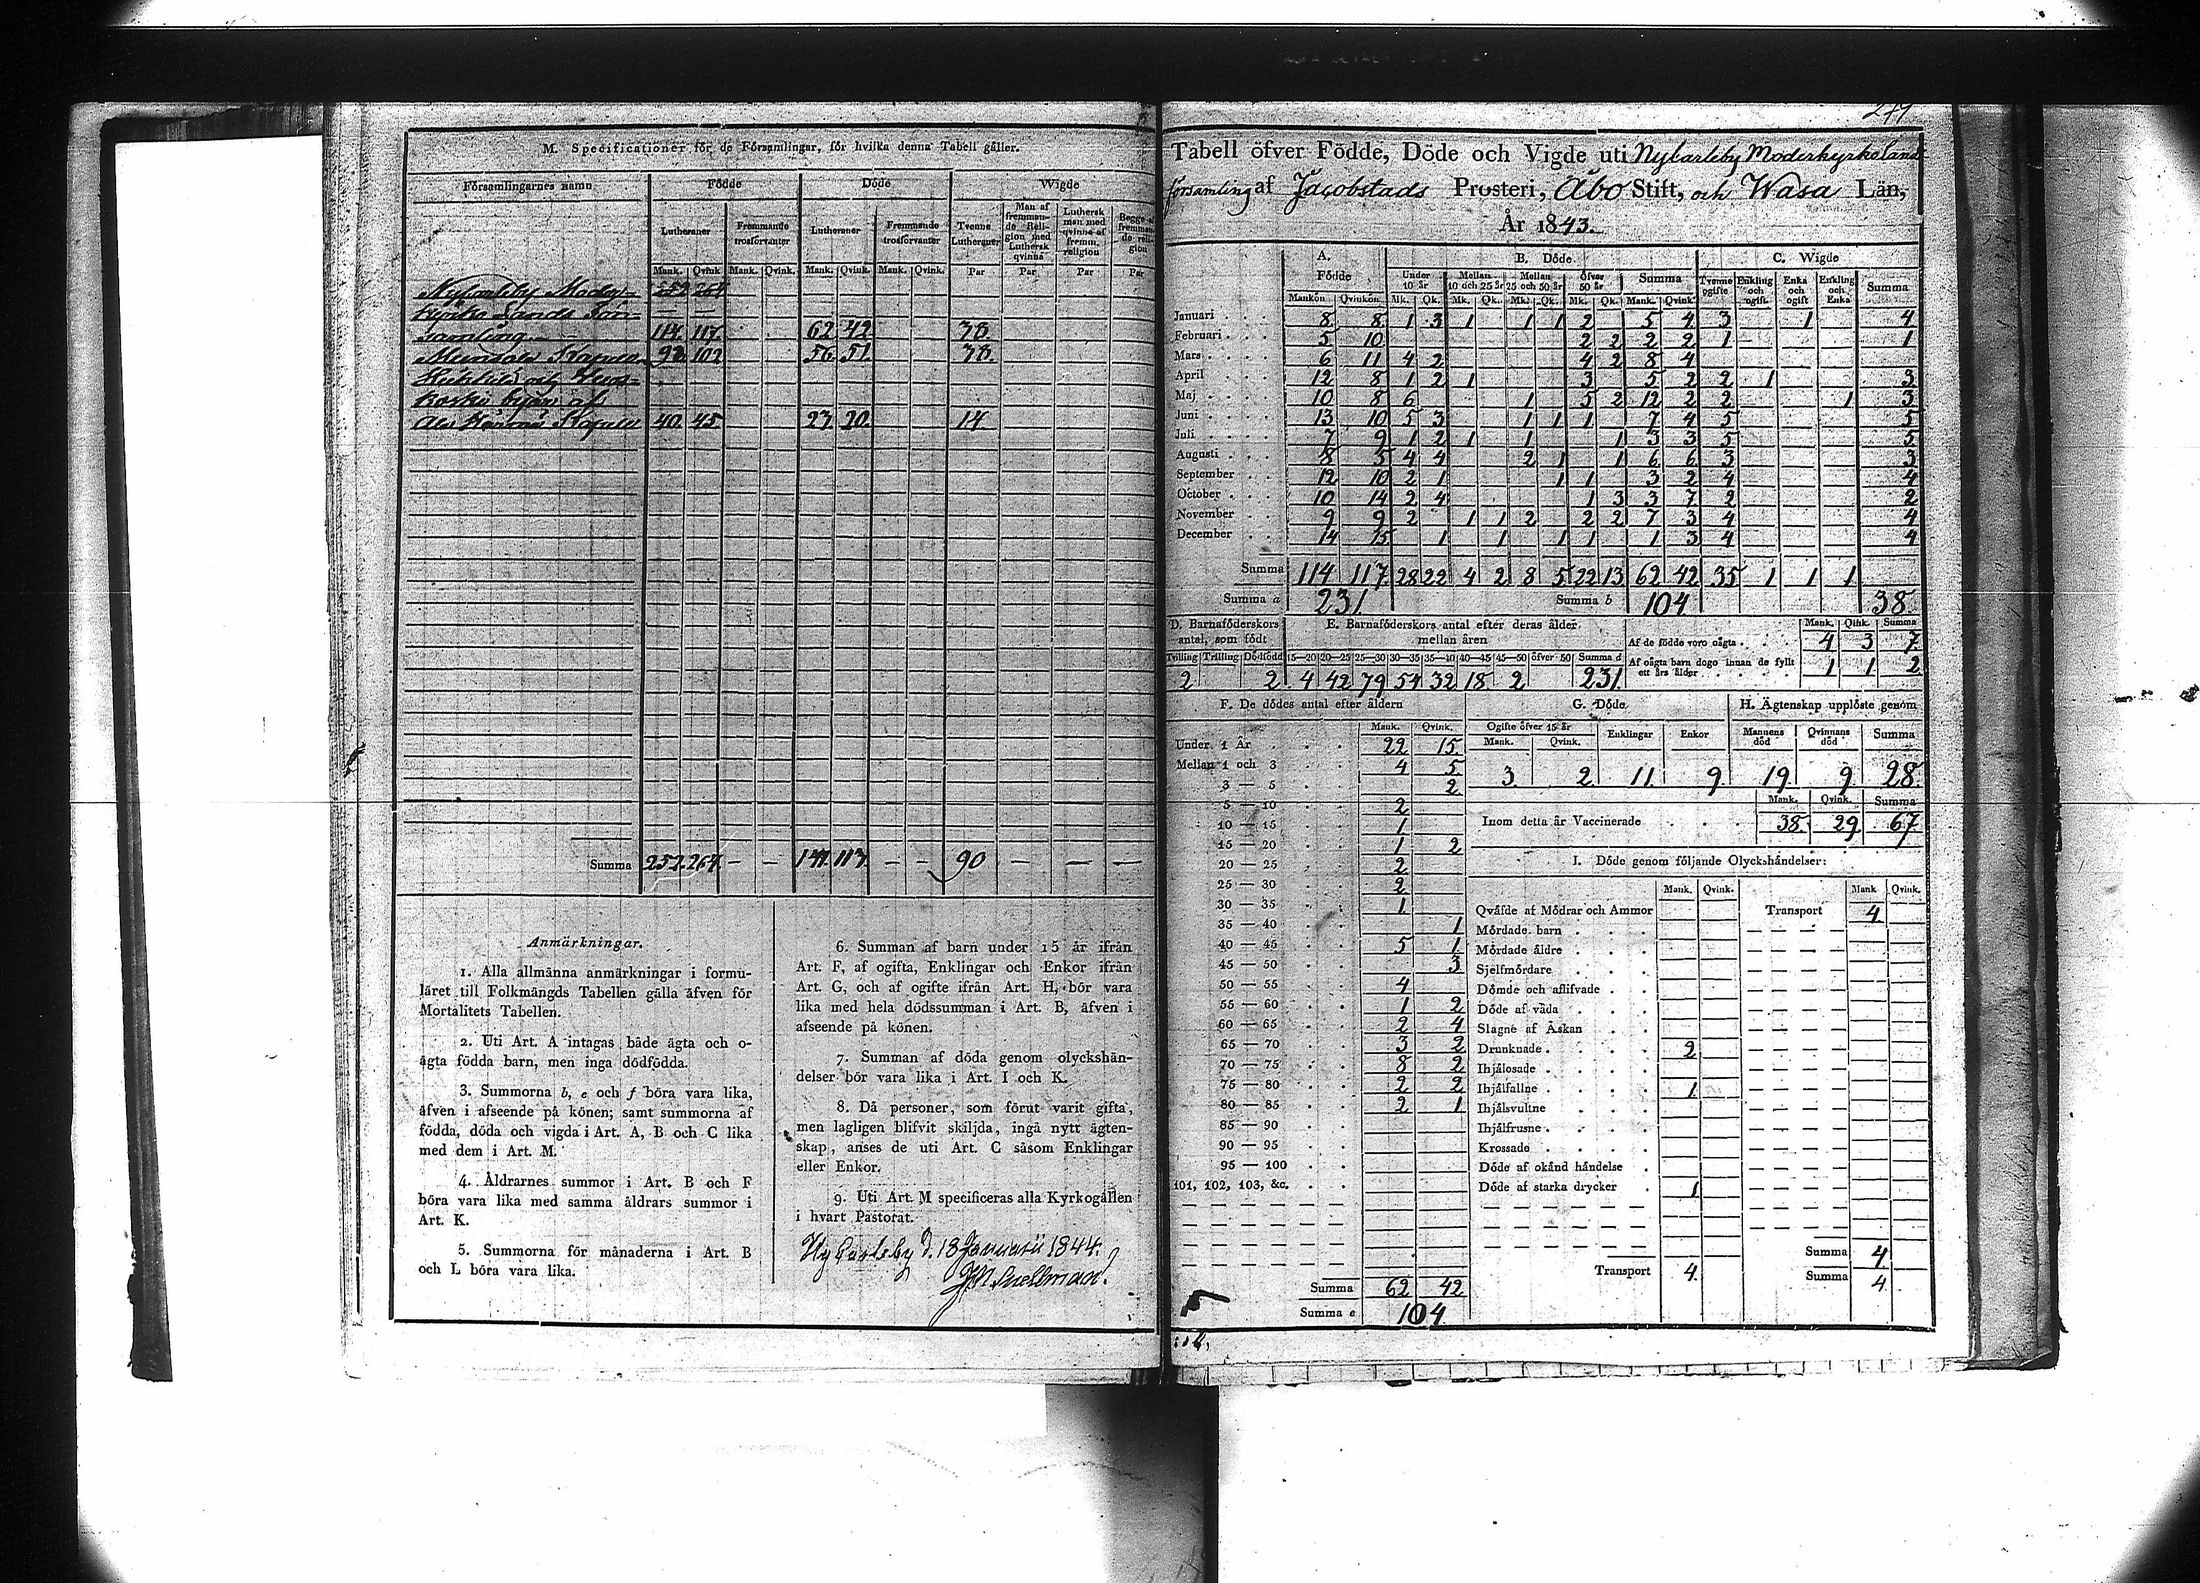 M. Specificationer för de Församlingar, för hvilka denna Tabell gäller.
Församlingarnes namn Födde Döde Wigde
Lutheraner Fremmande trosförvanter Lutheraner Fremmande trosförvanter Tvenne Lutheraner Man af fremmande Religion med Luthersk qvinna Luthersk man med qvinna af fremm. religion Begge af fremmande religion
Mank. Qvink. Mank. Qvink. Mank. Qvink. Mank. Qvink. Par Par Par Par
Nykarleby Moder-
kyrko Lands För-
samling 114. 117. 62 42. 38.
Munsala Kapell 98 102 56 51. 38.
koski byar af
Alahärmä Kapell 40. 45 23 20. 14.
Summa 252. 264. — — 141. 113. — — 90 — — —
Anmärkningar.
1. Alla allmänna anmärkningar i formu-
läret till Folkmängds Tabellen gälla äfven för
Mortalitets Tabellen.
2. Uti Art. A intagas både ägta och o-
ägta födda barn, men inga dödfödda.
3. Summorna b, e och f böra vara lika,
äfven i afseende på könen; samt summorna af
födda, döda och vigda i Art. A, B och C lika
med dem i Art. M.
4. Åldrarnes summor i Art. B och F
böra vara lika med samma åldrars summor i
Art. K.
5. Summorna för månaderna i Art. B
och L böra vara lika.
6. Summan af barn under 15 år ifrån
Art. F, af ogifta, Enklingar och Enkor ifrån
Art. G, och af ogifte ifrån Art. H, bör vara
lika med hela dödssumman i Art. B, äfven i
afseende på könen.
7. Summan af döda genom olyckshän-
delser bör vara lika i Art. I och K.
8. Då personer, som förut varit gifta,
men lagligen blifvit skiljda, ingå nytt ägten-
skap, anses de uti Art. C såsom Enklingar
eller Enkor.
9. Uti Art. M specificeras alla Kyrkogällen
i hvart Pastorat.
Ny Carleby d. 18 Januarii 1844.
Snellman.
Tabell öfver Födde, Döde och Vigde uti Nykarleby Moderkyrko Lands
församling af Jacobstads Prosteri, Åbo Stift, och Wasa Län,
År 1843.
A. Födde B. Döde C. Wigde
Under 10 år Mellan 10 och 25 år Mellan 25 och 50 år Öfver 50 år Summa Tvenne ogifte Enkling och ogift Enka och ogift Enkling och Enka Summa
Mankön Qvinkön Mk. Qk. Mk. Qk. Mk. Qk. Mk. Qk. Mank. Qvink.
Januari 8 8 1 3 1 1 1 2 5 4 3 1 4
Februari 5 10 2 2 2 2 1 1
Mars 6 11 4 2 4 2 8 4
April 12 8 1 2 1 3 5 2 2 1 3
Maj 10 8 6 1 5 2 12 2 2 1 3
Juni 13 10 5 3 1 1 1 7 4 5 5
Juli 7 9 1 2 1 1 1 3 3 5 5
Augusti 8 5 4 4 2 1 1 6 6 3 3
September 12 10 2 1 1 1 3 2 4 4
October 10 14 2 4 1 3 3 7 2 2
November 9 9 2 1 1 2 2 2 7 3 4 4
December 14 15 1 1 1 1 1 3 4 4
Summa 114 117 28 22 4 2 8 5 22 13 62 42 35 1 1 1
Summa a 231. Summa b 104 38.
D. Barnaföderskors antal, som födt E. Barnaföderskors antal efter deras ålder mellan åren Mank. Qink. Summa
Af de födde voro oägta 4 3 7.
Tvilling Trilling Dödfödd 15—20 20—25 25—30 30—35 35—40 40—45 45—50 öfver 50 Summa d
Af oägta barn dogo innan de fyllt ett års ålder 1 1 2
2 2 4 42 79 54 32 18 2 231.
F. De dödes antal efter åldern
Mank. Qvink.
Under 1 År 22 15
Mellan 1 och 3 4 5
3 — 5 2
5 — 10 2
10 — 15 1
15 — 20 1 2
20 — 25 2
25 — 30 2
30 — 35 1
35 — 40 1
40 — 45 5 1
45 — 50 3
50 — 55 4
55 — 60 1 2
60 — 65 2 4
65 — 70 3 2
70 — 75 8 2
75 — 80 2 2
80 — 85 2 1
85 — 90
90 — 95
95 — 100
101, 102, 103, &c.
Summa 62 42
Summa e 104
G. Döde H. Ägtenskap upplöste genom
Ogifte öfver 15 år Enklingar Enkor Mannens död Qvinnans död Summa
Mank. Qvink.
3. 2. 11. 9. 19. 9. 28.
Mank. Qvink. Summa
Inom detta år Vaccinerade 38. 29 67
I. Döde genom följande Olyckshändelser:
Mank. Qvink. Mank Qvink.
Qväfde af Mödrar och Ammor Transport 4
Mördade barn
Mördade äldre
Sjelfmördare
Dömde och aflifvade
Döde af våda
Slagne af Åskan
Drunknade 2
Ihjälosade
Ihjälfallne 1.
Ihjälsvultne
Ihjälfrusne
Krossade
Döde af okänd händelse
Döde af starka drycker 1
Summa 4
Transport 4. Summa 4